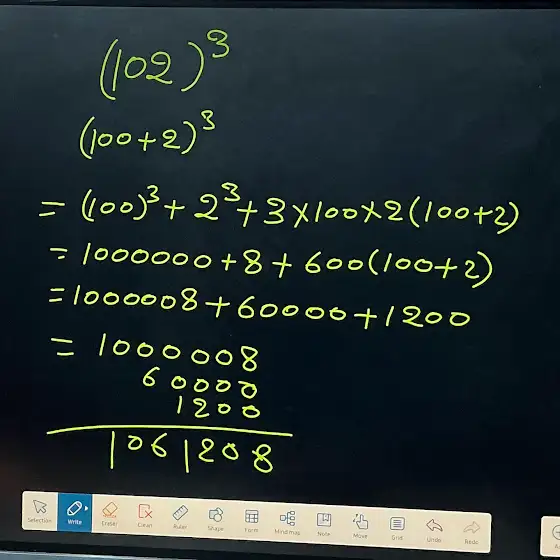 (102)³
(100+2)³
= (100)³ + 2³ + 3×100×2(100+2)
= 1000000 + 8 + 600(100+2)
= 1000008 + 60000 + 1200
= 1000008
60000
1200
1061208
Selection Write Eraser Clean Ruler Shape Form Mindmap Note Move Grid Undo Redo